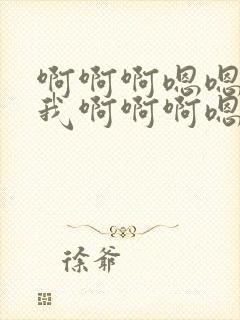 啊啊啊嗯嗯
我啊啊啊嗯
徐爷